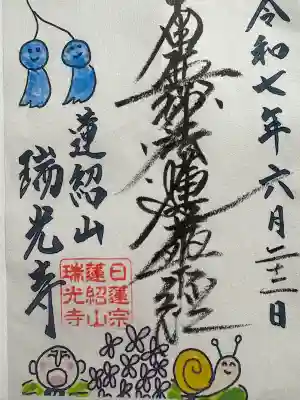 令和七年六月二十二日
南無妙法蓮華経
蓮紹山
瑞光寺
日蓮宗
蓮紹山
瑞光寺